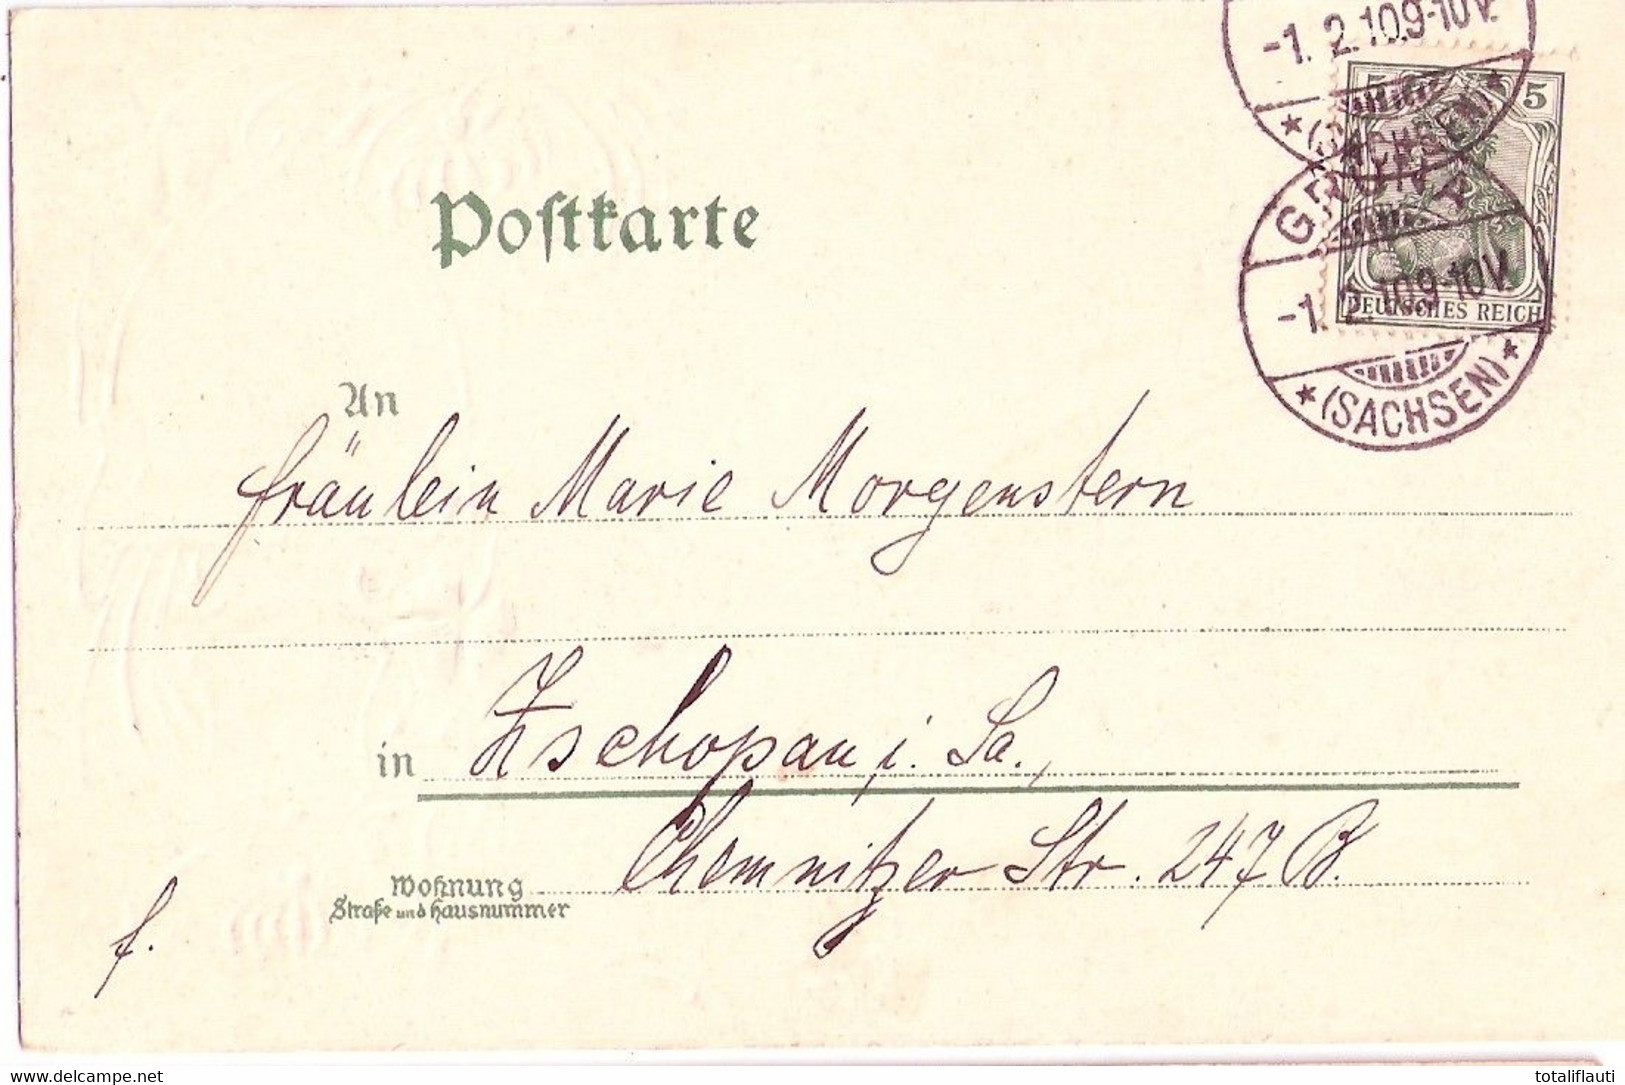 -1. 2.10.9-10V.
★ (SACHSEN) ★
5 5
GRÜNA
-1. 2.10.9-10V.
DEUTSCHES REICH
★ (SACHSEN) ★
Postkarte
An
Fräulein Marie Morgenstern
in Zschopau i. Sa.,
Chemnitzer Str. 247 B.
Wohnung
Straße und Hausnummer
f.
delcampe.net
totaliflauti